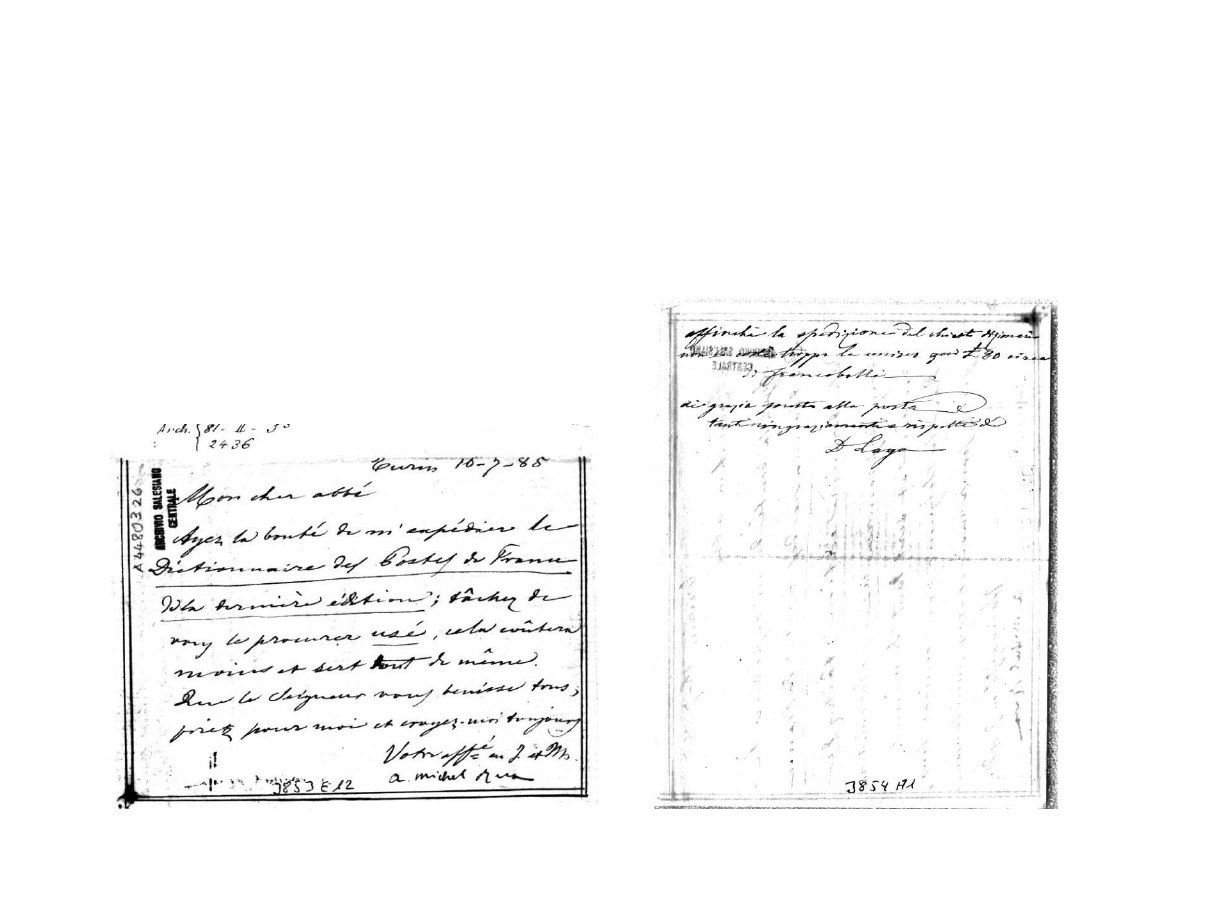 Arch. { 81 - II - 3°
2436
A4480326
ARCHIVIO SALESIANO
CENTRALE
Turin 16-7-85
Mon cher abbé
Ayez la bonté de m'expédier le
Dictionnaire des Postes de France
de la dernière édition; tâchez de
vous le procurer usé, cela coûtera
moins et sert tout de même.
Que le Seigneur vous benisse tous,
priez pour moi et croyez-moi toujours
Votre affné en J. et M.
a. michel Rua
3853 E 12
affinchè la spedizione del chiesto
troppo le unisco qui £ 30 circa
francobolli
di grazia presto alla posta
tanti ringraziamenti e rispetti da
D Lago
3854 A1